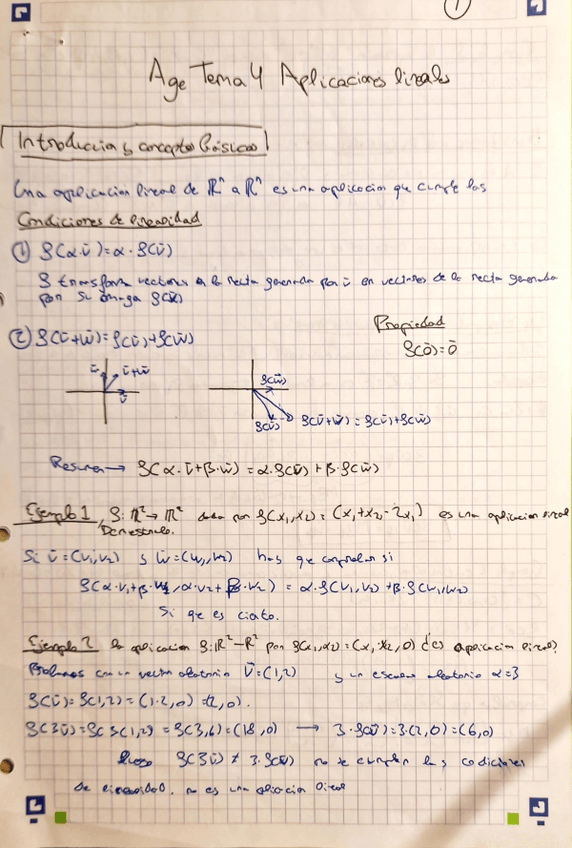 1
Age Tema 4 Aplicaciones lineales
Introducción y conceptos básicos
Una aplicación lineal de ℝⁿ a ℝⁿ es una aplicación que cumple las
Condiciones de linealidad
① f(α·ū)=α·f(ū)
f transforma vectores en la recta generada por ū en vectores de la recta generada
por su imagen f(ū)
② f(ū+w̄)=f(ū)+f(w̄)
Propiedad
f(ō)=ō
w̄ ū+w̄
ū
f(w̄)
f(ū) f(ū+w̄)=f(ū)+f(w̄)
Resumen → f(α·ū+β·w̄)=α·f(ū)+β·f(w̄)
Ejemplo 1, f: ℝ²→ℝ² dada por f(x₁,x₂)=(x₁+x₂,-2x₁) es una aplicación lineal
Demestralo.
Si ū=(v₁,v₂) y w̄=(w₁,w₂) hay que comprobar si
f(α·v₁+β·w₁,α·v₂+β·w₂) = α·f(v₁,v₂)+β·f(w₁,w₂)
Si que es cierto.
Ejemplo 2 la aplicacion f:ℝ²→ℝ² por f(x₁,x₂)=(x₁·x₂,0) ¿es aplicacion lineal?
Probamos con un vector aleatorio v̄=(1,2) y un escalar aleatorio α=3
f(ū)=f(1,2)=(1·2,0)=(2,0).
f(3ū)=f(3(1,2))=f(3,6)=(18,0) → 3·f(ū)=3·(2,0)=(6,0)
luego f(3ū) ≠ 3·f(ū) no se cumplen las condiciones
de linealidad, no es una aplicación lineal